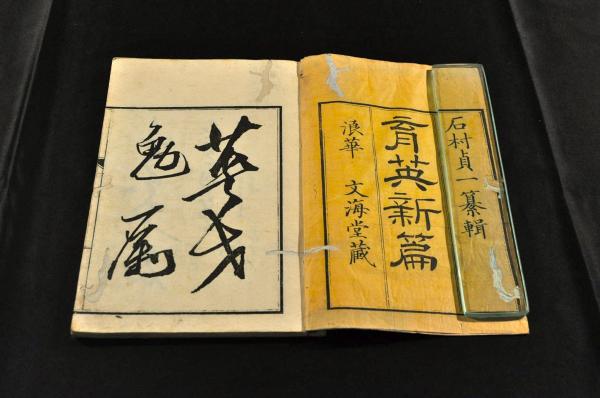 石村貞一纂輯
育英新篇
浪華 文海堂藏
英才